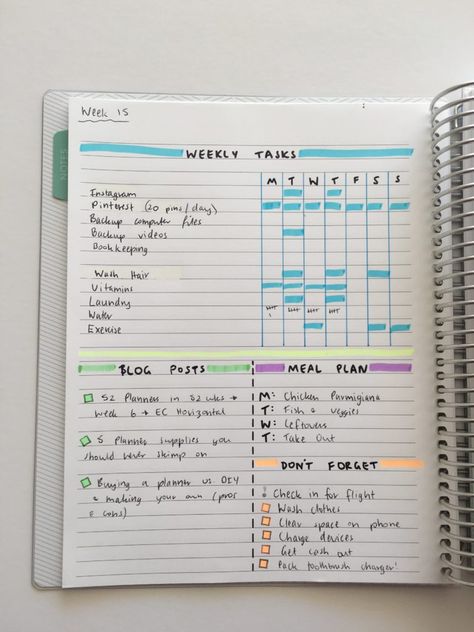 Week 15
NOTES
WEEKLY TASKS
M T W T F S S
Instagram
Pinterest (20 pins/day)
Backup computer files
Backup videos
Bookkeeping
Wash Hair
Vitamins
Laundry
Water
Exercise
BLOG POSTS
52 Planners in 52 wks →
Week 6 → EC Horizontal
5 Planner supplies you
should never skimp on
Buying a planner vs DIY
& making your own (pros
& cons)
MEAL PLAN
M: Chicken Parmigiana
T: Fish & veggies
W: Leftovers
T: Take Out
DON'T FORGET
! Check in for flight
Wash clothes
Clear space on phone
Charge devices
Get cash out
Pack toothbrush charger!